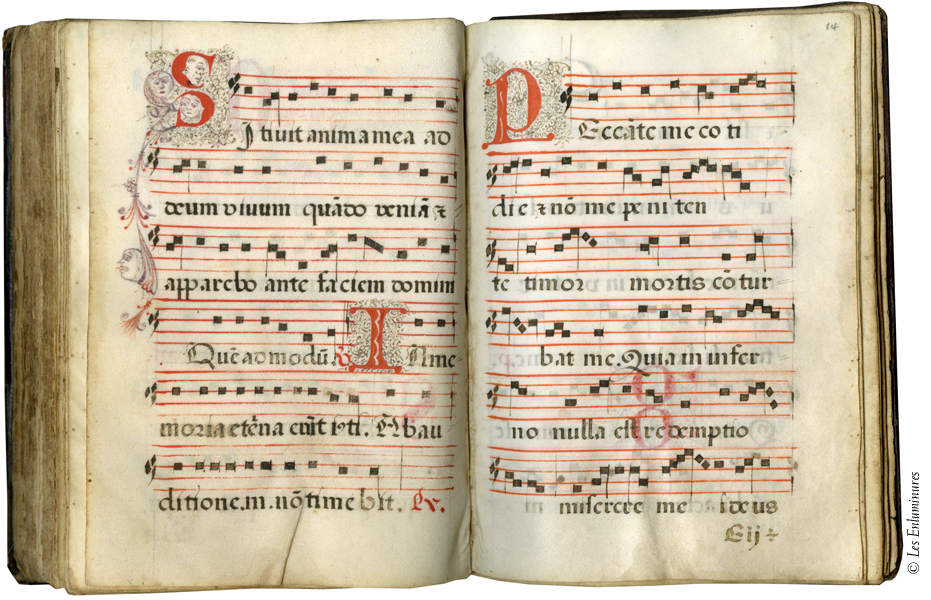 Sitiuit anima mea ad
deum viuum quādo veniā &
apparebo ante faciem domini
Quēadmodū ℟ In me
moria etērna erūt ivti.
ditione.m.nōtimebit. Lv.
14
Peccāte me coti
die & nō me peniten
te timor mortis cōtur
bat me. Quia in infer
no nulla est redemptio
miserere mei deus
Eij
© Les Enluminures